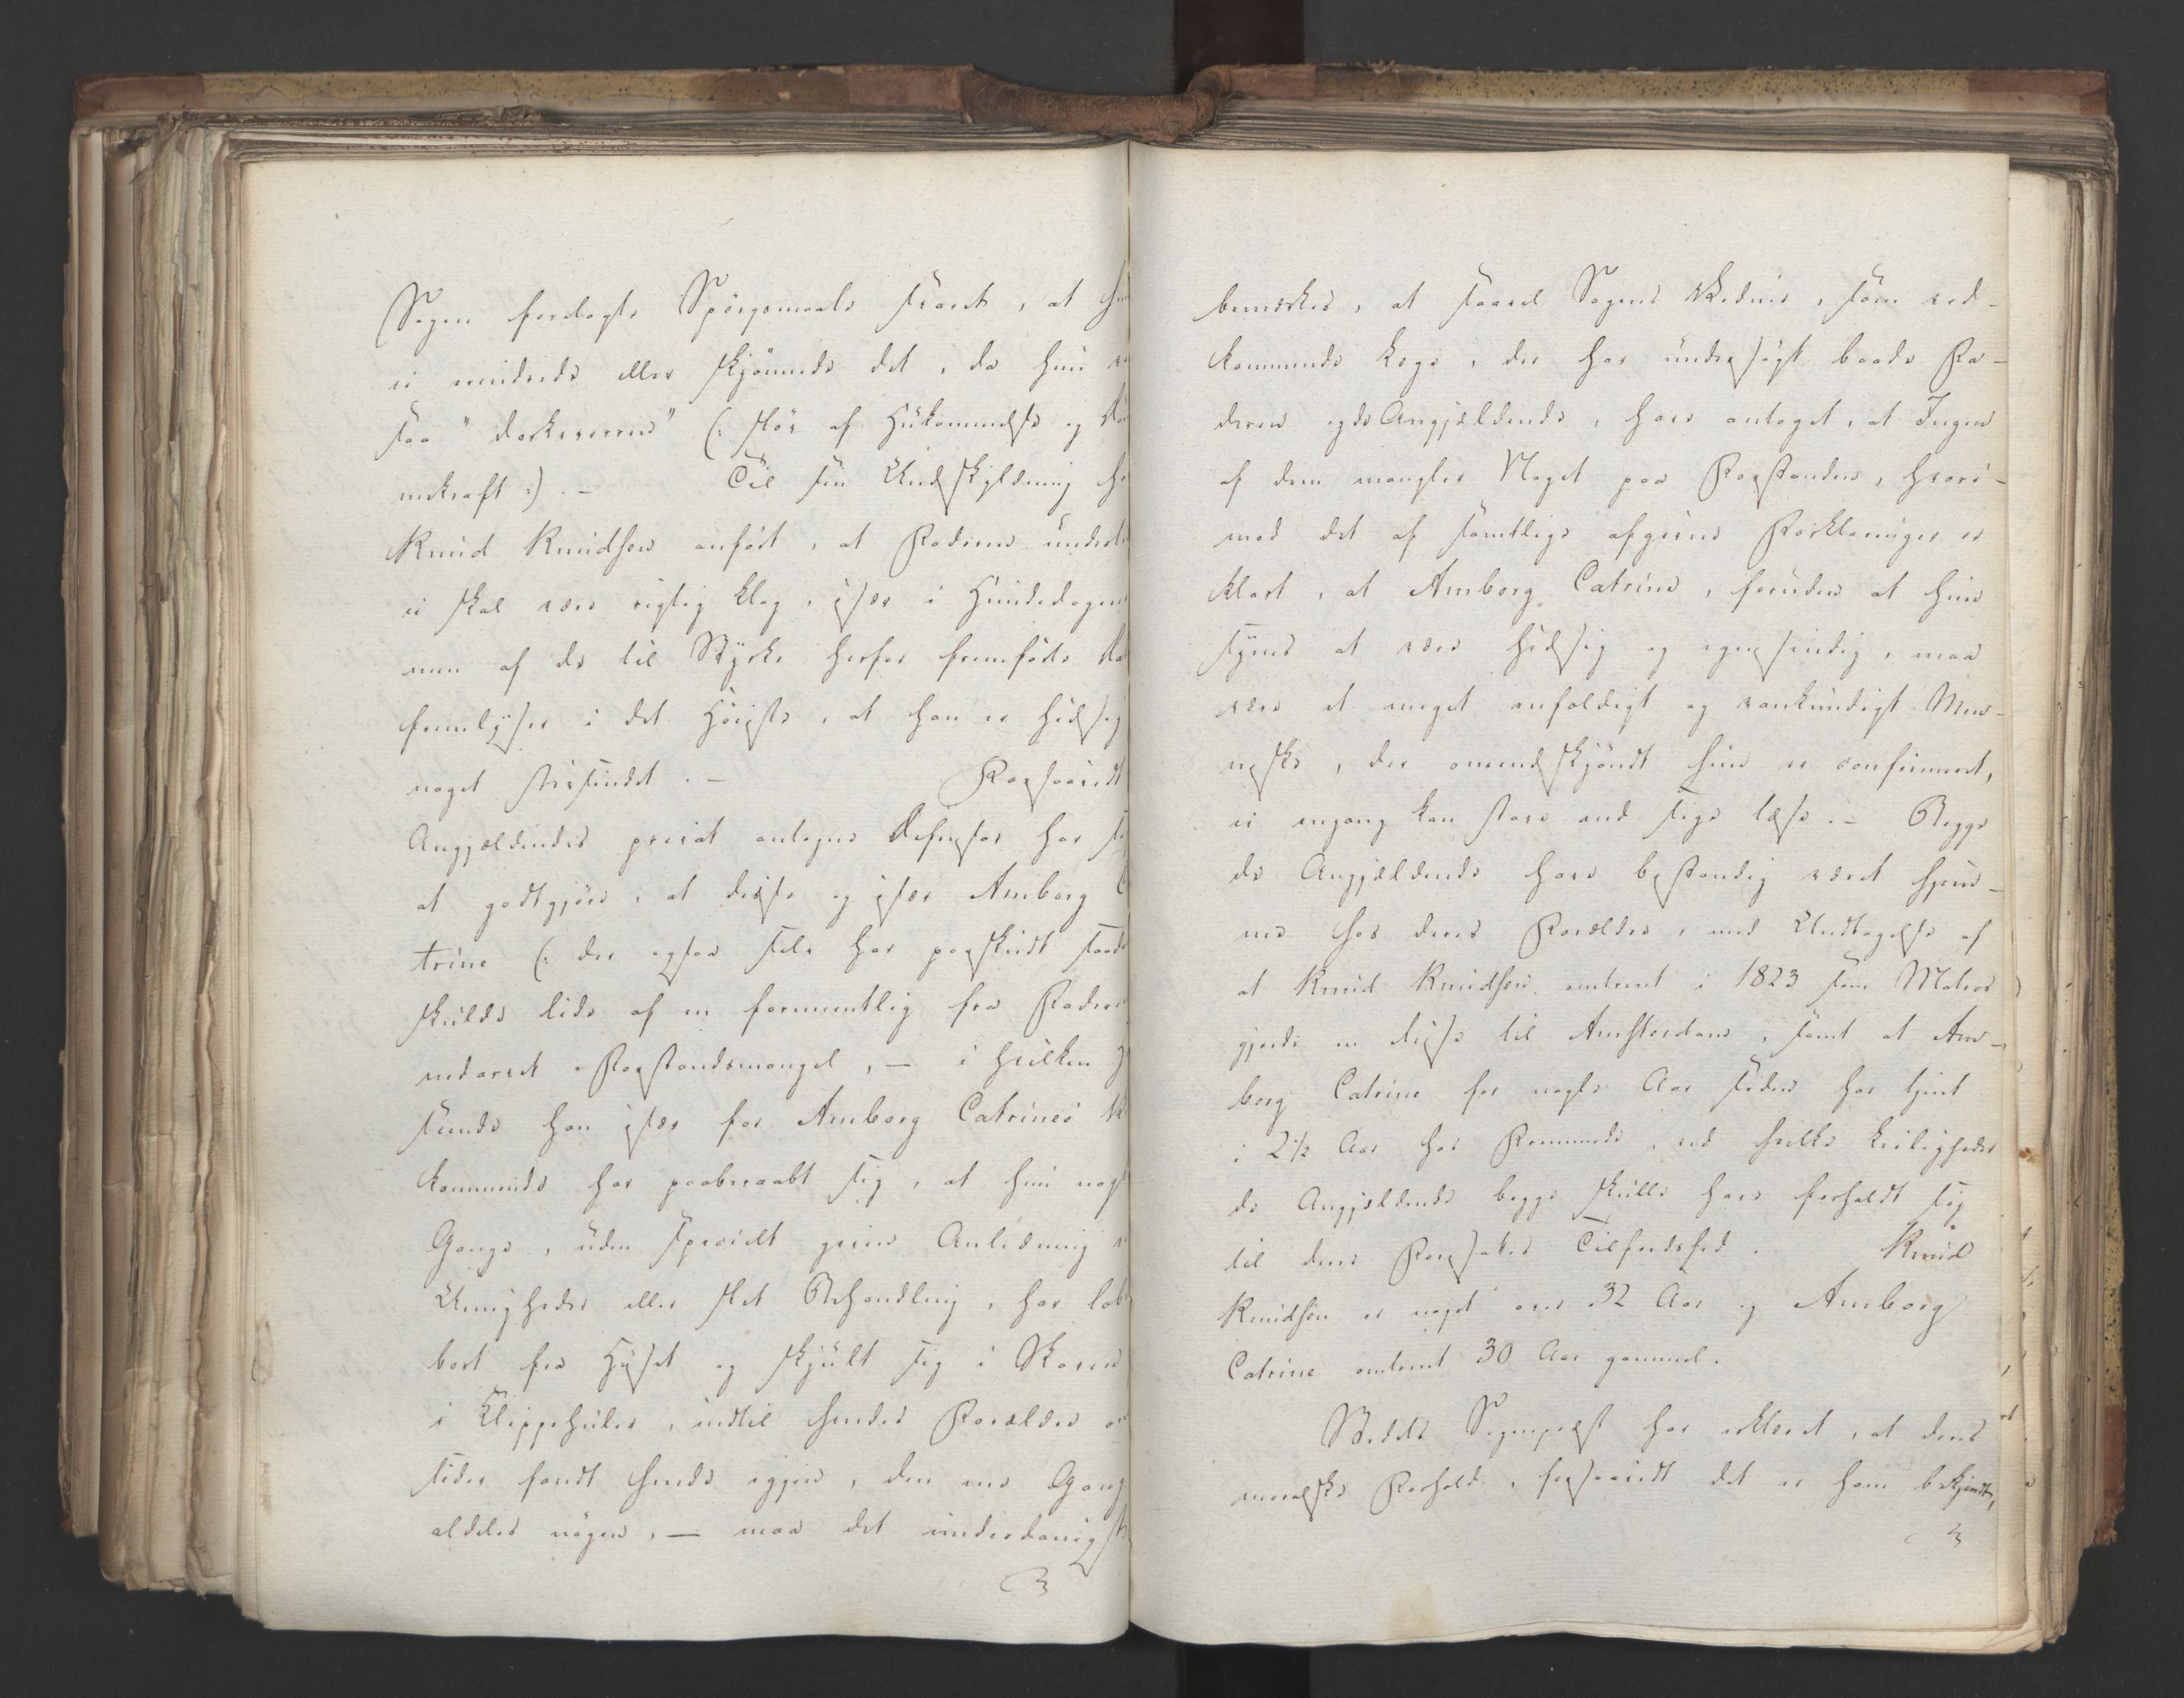 Sagen forelagte Spörgsmaale svaret, at hu
ei erindrede eller skjönnede det, da hun
saa "
nekraft :) . – Til sin Undskyldning ha
Knud Knudsen anfört, at Faderen underti
ei skal være rigtig klog, især i Hundedagen
men af de til Styrke herfor fremförte
fremlyser i det Höieste, at han er hidsig
noget stivsindet. – Forsaavidt
Angjældendes privat antagne Defensor har
at godtgjöre, at disse og især Amborg C
trine (: der ogsaa selv har paaskudt saad
skulde lide af en formeentlig fra Fadere
nedarvet Forstandsmangel, — i hvilken
seende han især for Amborg Catrines
kommende har paaberaabt sig, at hun nogl
Gange, uden specielt given Anledning
Uenigheder eller slet Behandling, har löb
bort fra Huset og skjult sig i Skoven
i Klippehuler, indtil hendes Forældre
sider fandt hende igjen, den ene Gang
aldeles nögen, — maa det underdanigst
bemærkes, at saavel Sagens Vidner, som ved-
kommende Læge, der har undersögt baade Fa-
deren og de Angjældende, have antaget, at Ingen
af dem mangler Noget paa Forstanden, hvori-
mod det af samtlige afgivne Forklaringer er
klart, at Amborg Catrine, foruden at hun
synes at være hidsig og egensindig, maa
være et meget eenfoldigt og vankundigt Men-
neske, der omendskjöndt hun er confirmeret,
ei engang kan stave end sige læse. – Begge
de Angjældende have bestandig været hjem-
me hos deres Forældre, med Undtagelse af
at Knud Knudsen omtrent i 1823 som Matros
gjorde en Reise til Amsterdam, samt at Am-
borg Catrine for nogle Aar siden har tjent
i 2½ Aar hos Fremmede, ved hvilke Leiligheder
de Angjældende begge skulle have forholdt sig
til deres Foresattes Tilfredshed. Knud
Knudsen er noget over 32 Aar og Amborg
Catrine omtrent 30 Aar gammel.
Stedets Sognepræst har erklæret, at deres
moralske Forhold, forsaavidt det er ham bekjendt,